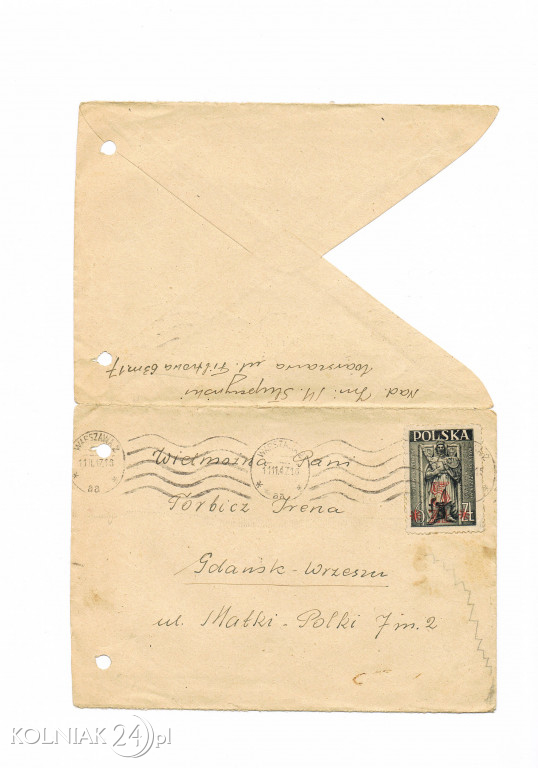 nad. Inż. M. Słupczyński
Warszawa ul. Filtrowa 63 m 17
WARSZAWA 2
11.II.47.18
aa
POLSKA
Zł
Wielmożna Pani
Törbicz Irena
Gdańsk-Wrzeszcz
ul. Matki-Polki 7 m. 2
KOLNIAK 24.pl